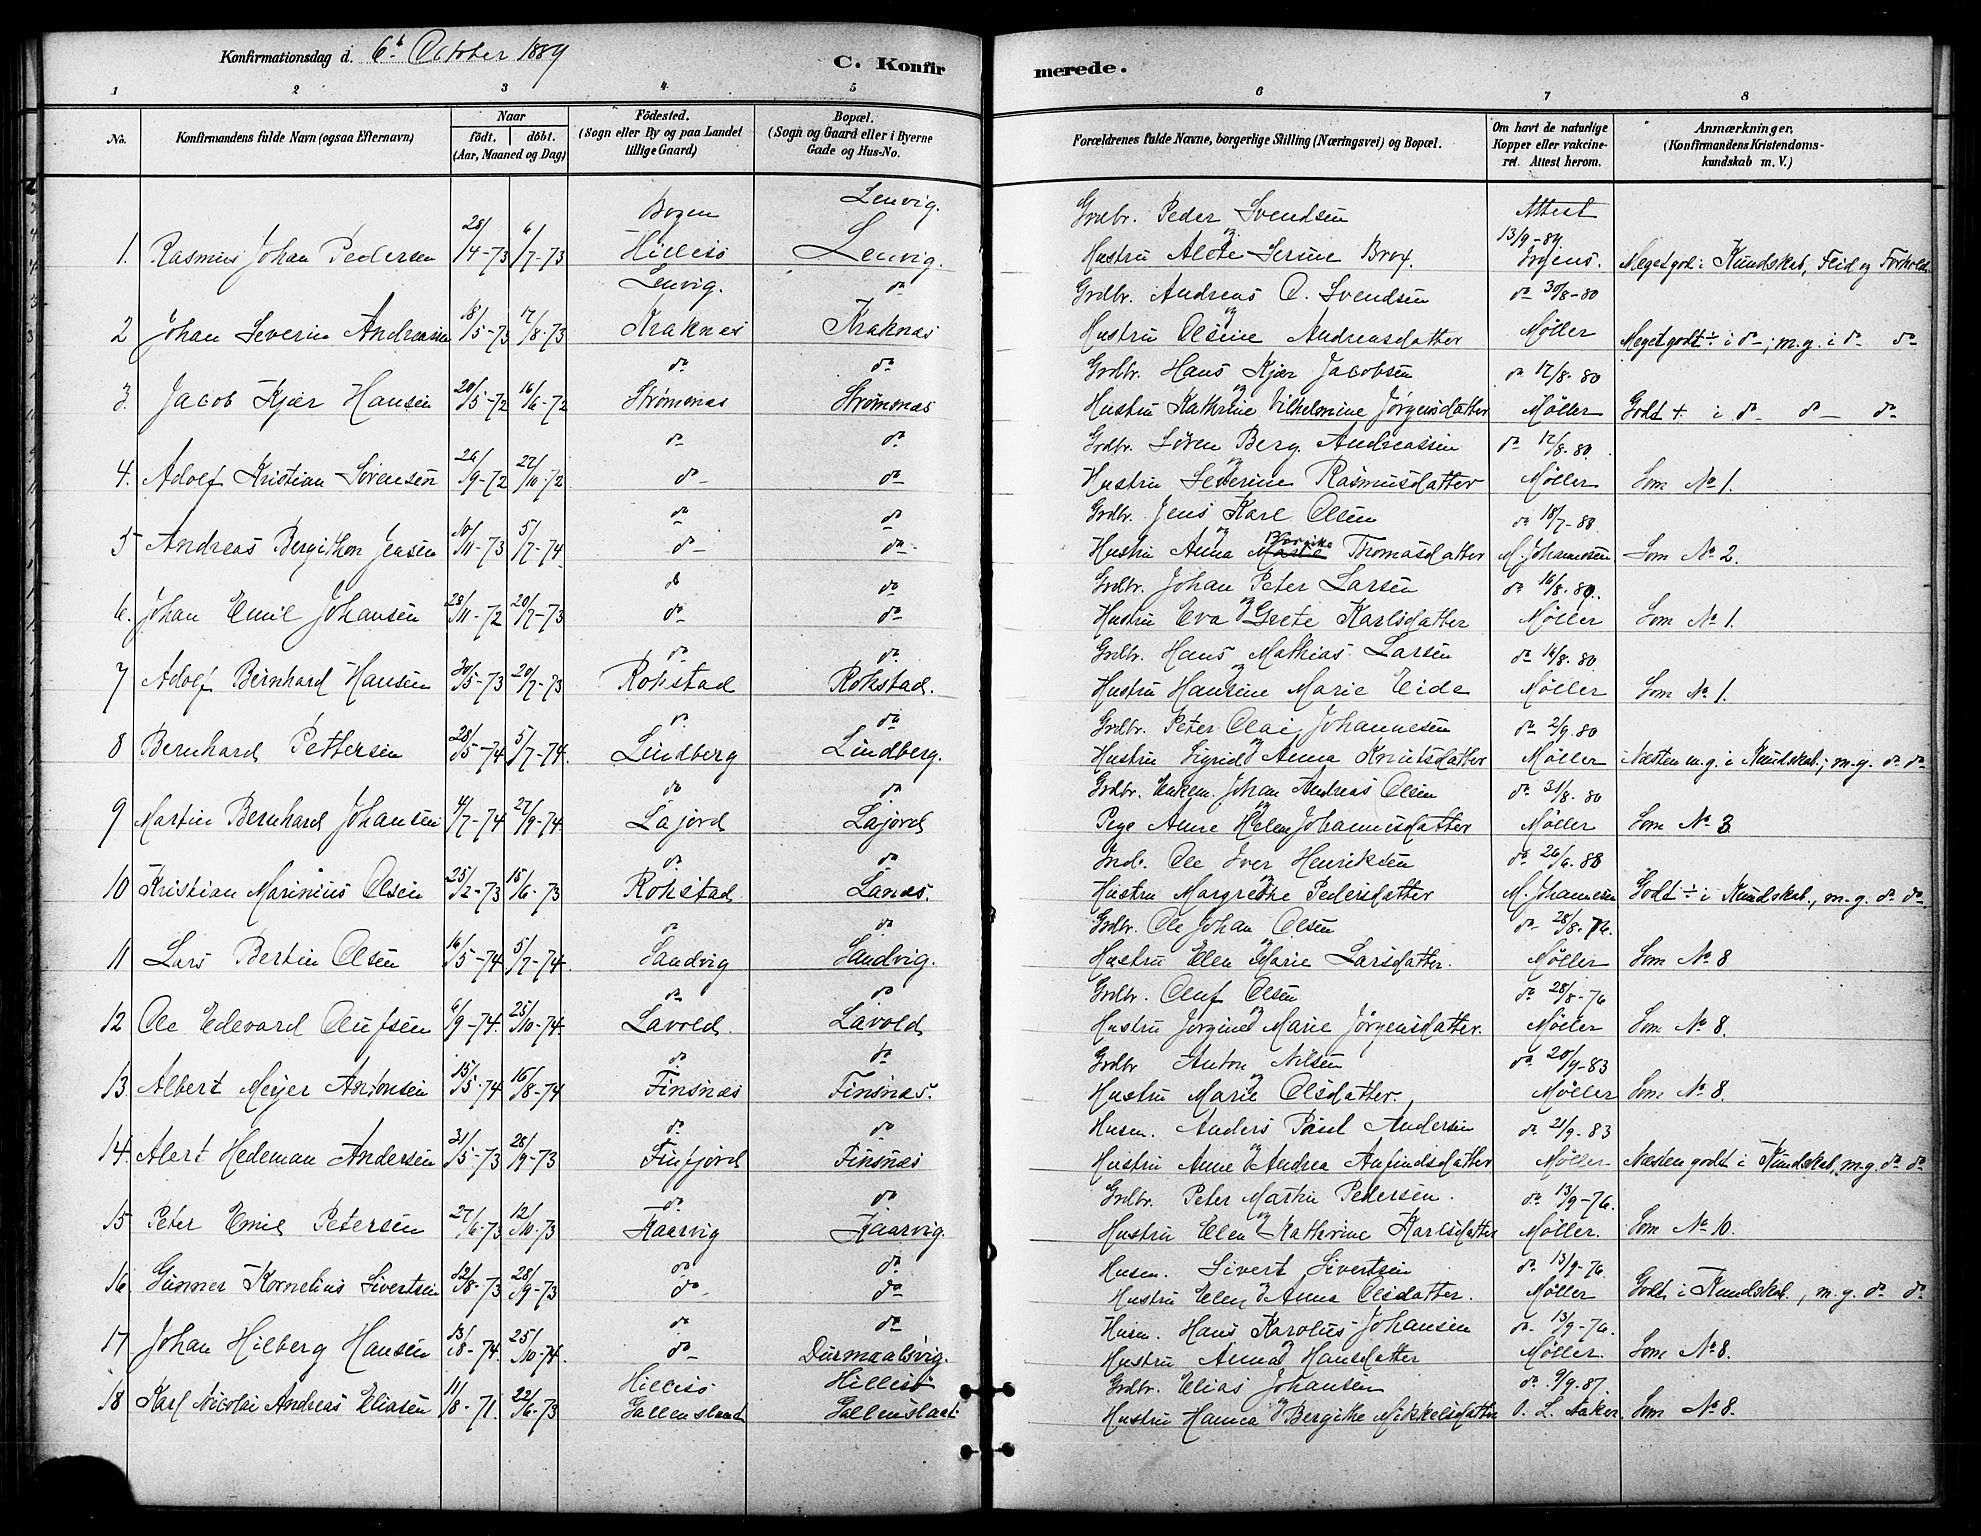 Konfirmationsdag d. 6t October 1889
C. Konfirmerede.
1 2 3 4 5 6 7 8
No.
Konfirmandens fulde Navn (ogsaa Efternavn)
Naar
födt. döbt.
(Aar, Maaned og Dag)
Födested.
(Sogn eller By og paa Landet
tillige Gaard)
Bopæl.
(Sogn og Gaard eller i Byerne
Gade og Hus-No.
Forældrenes fulde Navne, borgerlige Stilling (Næringsvei) og Bopæl.
Om havt de naturlige
Kopper eller vakcine-
ret. Attest herom.
Anmærkninger.
(Konfirmandens Kristendoms-
kundskab m. V.)
Lenvig.
Bogen Grdbr. Peder Svendsen Attest
13/9-89.
1. Rasmus Johan Pedersen 28/4-73 6/7-73 Hillesö Lenvig. Hustru Alete Serine Brox. Meget god i Kundskab, Flid og Forhold
Lenvig. do Grdbr. Andreas O. Svendsen do 30/8-80
2 Johan Severin Andreassen 18/5-73 17/8-73 Kraknæs Kraknæs og Hustru Olsine Andreasdatter Møller Meget godt ÷ i do; m.g. i do do
do do Grdbr. Hans Kjær Jacobsen do 17/8-80
3. Jacob Kjær Hansen 20/5-72 16/6-72 Strømsnæs Strømsnæs og Hustru Kathrine Vilhelmine Jørgensdatter Møller Godt + i do do do
do do Grdbr. Sören Berg Andreassen do 12/8-80.
4. Adolf Kristian Sörensen 26/9-72 27/10-72 do do og Hustru Severine Rasmusdatter Møller Som No 1.
do do Grdbr. Jens Karl Olsen do 18/7-88
5 Andreas Bergithon Jensen 10/11-73 5/7-74 do do og Hustru Anna Thomasdatter M. Johannesen Som No 2.
do do Grdbr. Johan Peter Larsen do 16/8-80.
6. Johan Emil Johansen 28/11-72 20/7-73 do do og Hustru Eva Grete Karlsdatter Møller Som No 1.
do do Grdbr. Hans Mathias Larsen do 16/8-80
7 Adolf Bernhard Hansen 30/5-73 20/7-73 Rokstad Rokstad. og Hustru Hansine Marie Eide Møller Som No 1.
do do Grdbr. Peter Olai Johannesen do 2/9-80
8 Bernhard Pettersen 28/5-74 5/7-74. Lindberg Lindberg. og Hustru Sigrid Anna Knutsdatter Møller Næsten m.g. i Kundskab; m.g. do do
do do Grdbr. Enkem. Johan Andreas Olsen do 31/8-80
9 Martin Bernhard Johansen 4/7-74 27/9-74 Lajord Lajord og Pige Anne Helen Johannesdatter Møller Som No 3
do do Inds. Ole Iver Henriksen do 26/6-88
10 Kristian Marinius Olsen 25/2-73 15/6-73 Rokstad Lånes. og Hustru Margrethe Pedersdatter M. Johannesen Godt ÷ i Kundskab, m.g. do do
do do Grdbr. Ole Johan Olsen do 28/8-76.
11 Lars Bertin Olsen 16/5-74 5/7-74 Sandvig Sandvig. og Hustru Elen Marie Larsdatter. Møller Som No 8
do do Grdbr. Oluf Olsen do 28/8-76
12 Ole Edevard Olufsen 6/9-74. 25/10-74 Lavold Lavold og Hustru Jörgine Marie Jörgensdatter. Møller Som No 8.
do do Grdbr Anton Nilsen do 20/9-83
13. Albert Meyer Antonsen 15/5-74 16/8-74 Finsnæs Finsnæs. og Hustru Marie Olsdatter. Møller Som No 8.
do do Husm. Anders Paul Andersen do 21/9-83
14. Alert Hedeman Andersen 31/5-73 28/9-73 Finfjord Finsnæs og Hustru Anne Andrea Anfindsdatter Møller Næsten godt i Kundskab, m.g. do do
do do Grdbr. Peter Martin Pedersen. do 13/9-76.
15 Peter Emil Petersen 27/6-73 12/10-73 Kaarvig Kaarvig. og Hustru Elen Kathrine Karlsdatter Møller. Som No 10.
do do Husm. Sivert Sivertsen do 13/9-76.
16. Gunner Kornelius Sivertsen 12/8-73 28/9-73 do do og Hustru Elen Anna Olsdatter. Møller Godt i Kundskab, m.g. do do
do do Husm. Hans Karolus Johansen do 13/9-76.
17 Johan Hilberg Hansen 13/8-74. 25/10-74. do Durmaalsvig. og Hustru Anna Hansdatter Møller. Som No 8.
Hillesö Hillesö Grdbr. Elias Johansen do 9/9-87
18 Karl Nicolai Andreas Eliasen 11/8-71. 22/6-73 Gallenslaat Gallenslaat og Hustru Hanna Bergithe Mikkelsdatter O. L. Aaker. Som No 8.